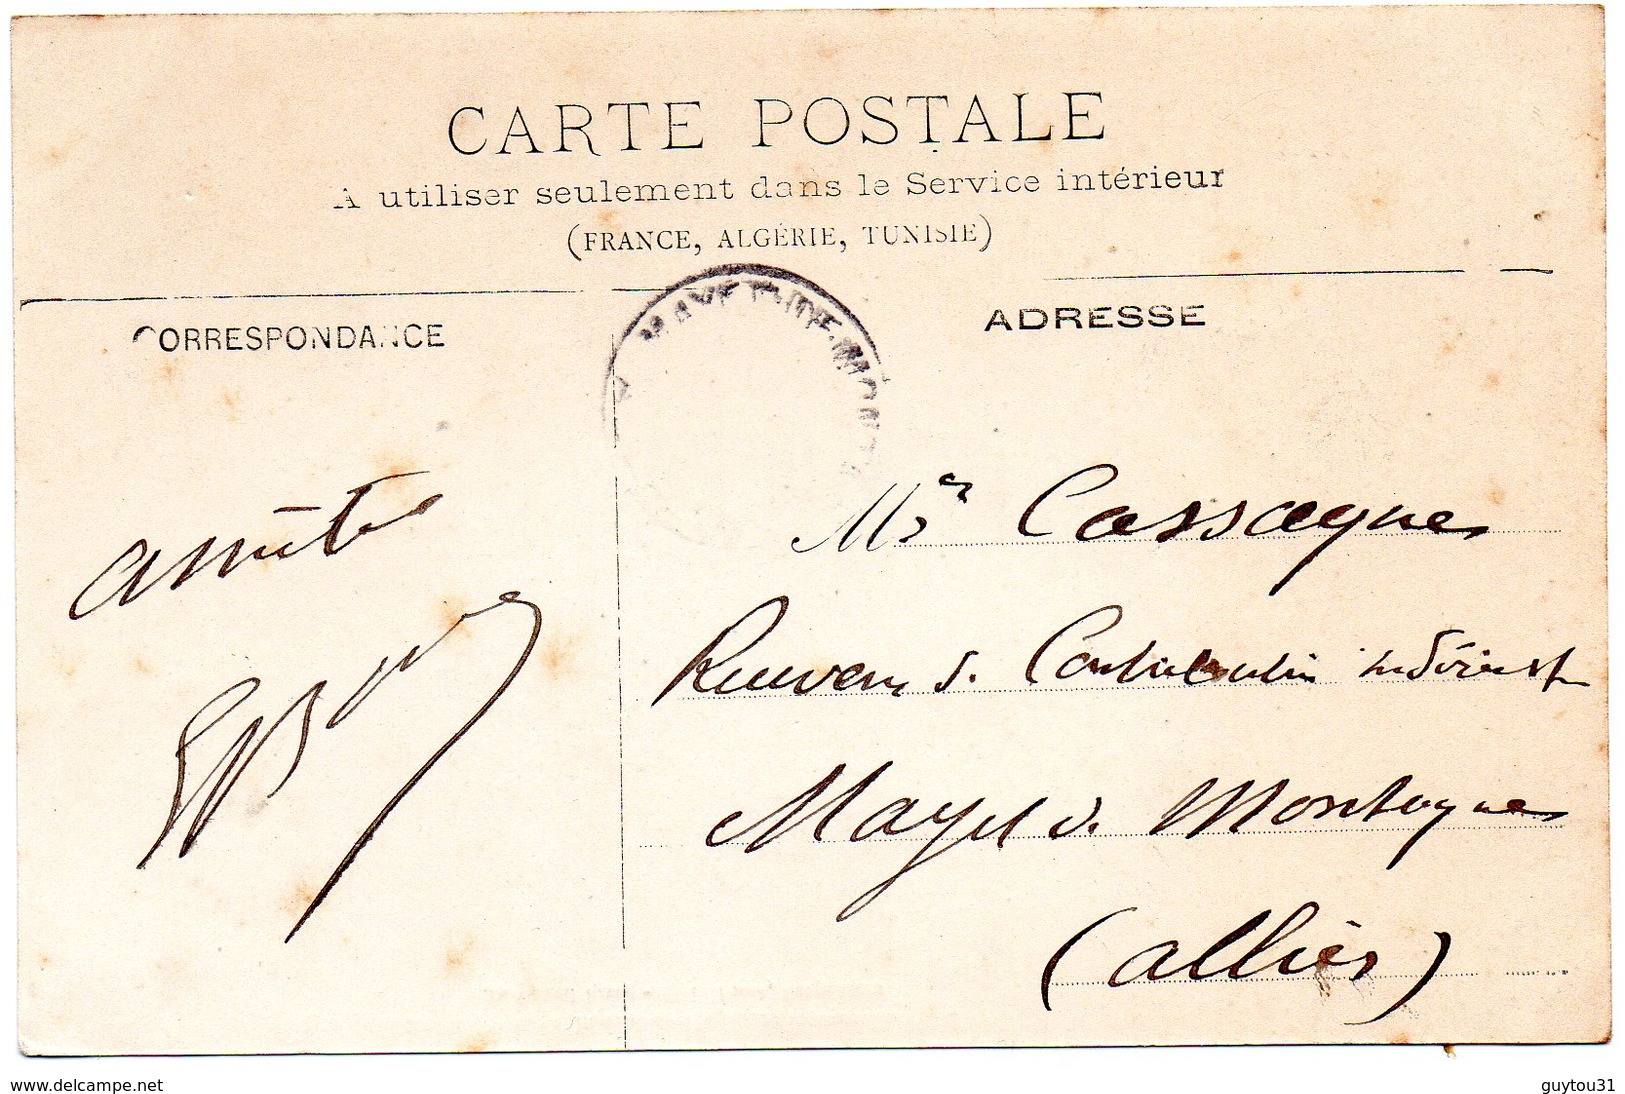 CARTE POSTALE
A utiliser seulement dans le Service intérieur
(FRANCE, ALGÉRIE, TUNISIE)
CORRESPONDANCE
ADRESSE
MAYET-DE-MONT
amitiés
Mr Cassagnes
Receveur d. Contributions indirectes
Mayet d. Montagne
(Allier)
www.delcampe.net
guytou31